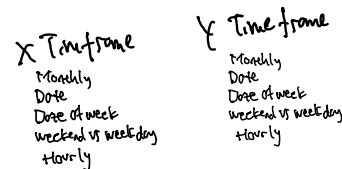 X Timeframe
Monthly
Date
Date of week
weekend vs weekday
Hourly
Y Timeframe
Monthly
Date
Date of week
weekend vs weekday
Hourly